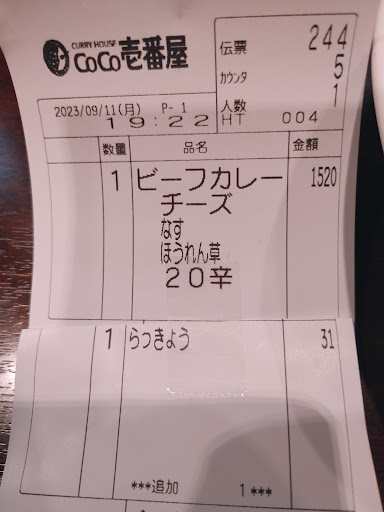 CURRY HOUSE
CoCo壱番屋
伝票 244
カウンタ 5
人数 1
2023/09/11(月) P- 1
19:22
HT 004
数量 品名 金額
1 ビーフカレー 1520
チーズ
なす
ほうれん草
20辛
1 らっきょう 31
***追加 1***